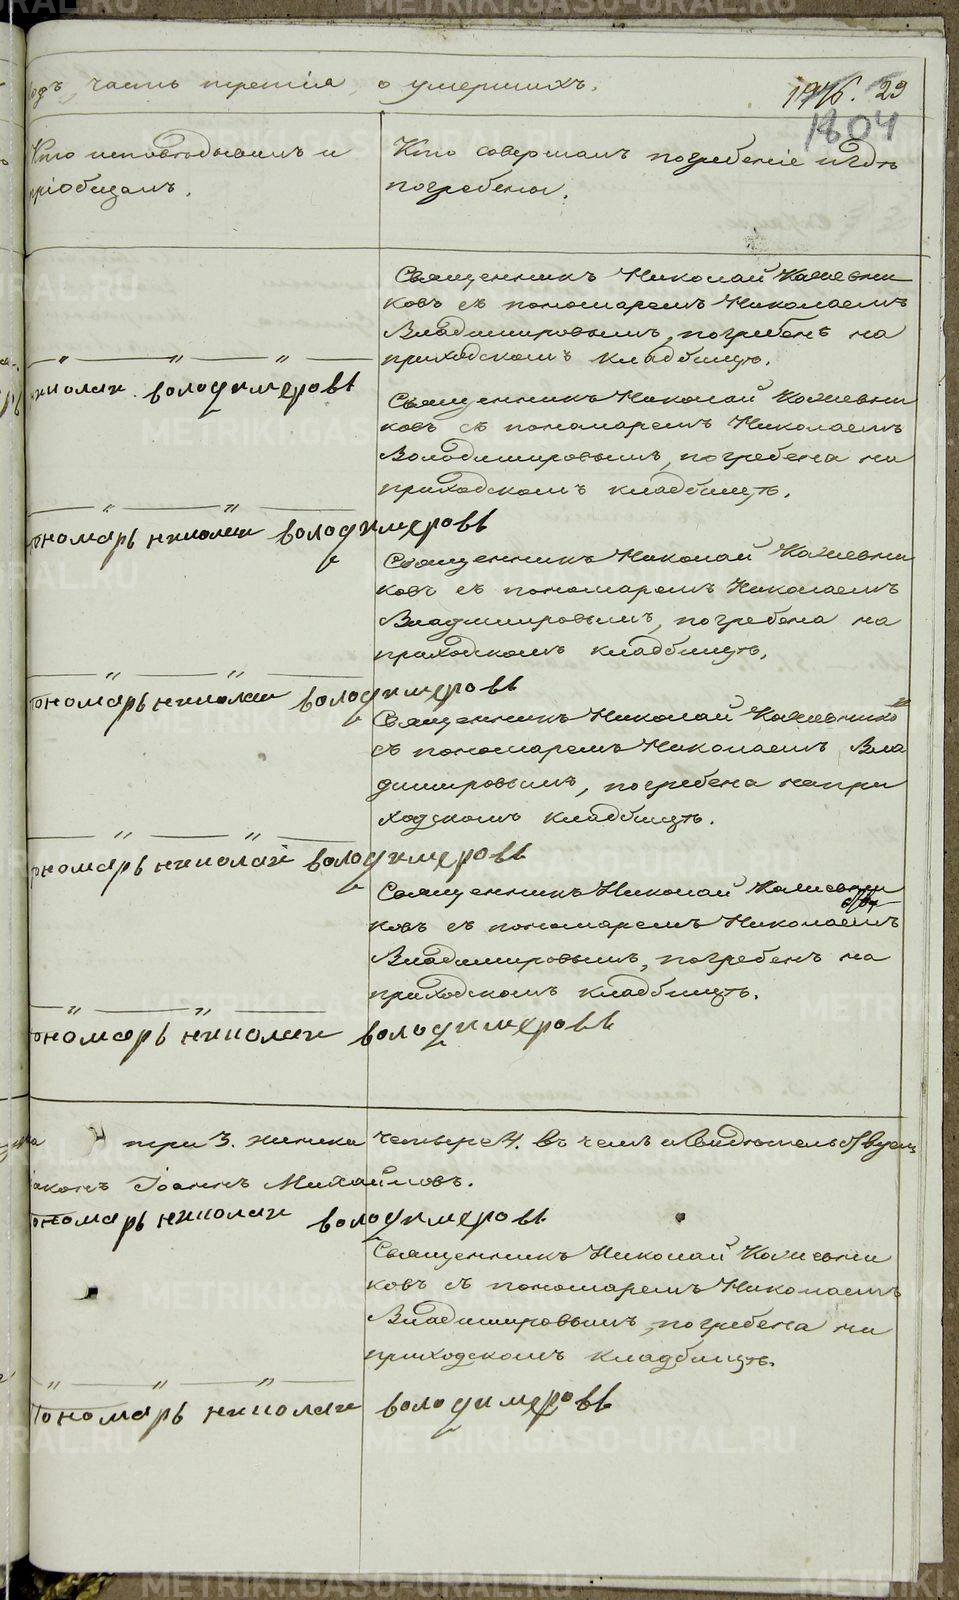 годъ, часть третія, о умершихъ.
1916. 29
1804
Кто исповѣдывалъ и
пріобщалъ.
Кто совершалъ погребеніе и гдѣ
погребены.
Священникъ Николай Кожевни
ковъ съ пономаремъ Николаемъ
Владимировымъ, погребенъ на
приходскомъ кладбищѣ.
николаи володимеровъ
Священникъ Николай Кожевни
ковъ съ пономаремъ Николаемъ
Володимировымъ, погребена на
приходскомъ кладбищѣ.
пономарь николаи володимеровъ
Священникъ Николай Кожевни
ковъ съ пономаремъ Николаемъ
Владимировымъ, погребена на
приходскомъ кладбищѣ.
пономарь николаи володимеровъ
Священникъ Николай Кожевнико
съ пономаремъ Николаемъ Вла
димировымъ, погребена на при
ходскомъ кладбищѣ.
пономарь николай володимеровъ
Священникъ Николай Кожевни
ковъ съ пономаремъ Николаемъ
Владимировымъ, погребенъ на
приходскомъ кладбищѣ.
пономарь николаи володимеровъ
три 3. женска четыре 4. въ чемъ и свидѣтельствуемъ
Іоаннъ Михайловъ.
пономарь николаи володимеровъ
Священникъ Николай Кожевни
ковъ съ пономаремъ Николаемъ
Владимировымъ, погребена на
приходскомъ кладбищѣ.
пономарь николаи володимеровъ
METRIKI.GASO-URAL.RU